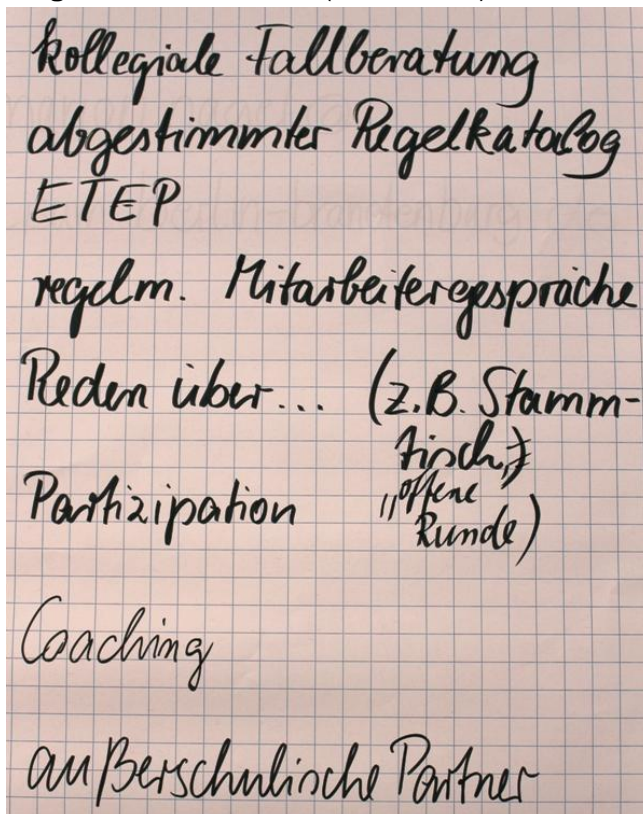 kollegiale Fallberatung
abgestimmter Regelkatalog
ETEP
regelm. Mitarbeitergespräche
Reden über... (z.B. Stamm-
tisch,
Partizipation „offene
Runde)
Coaching
außerschulische Partner